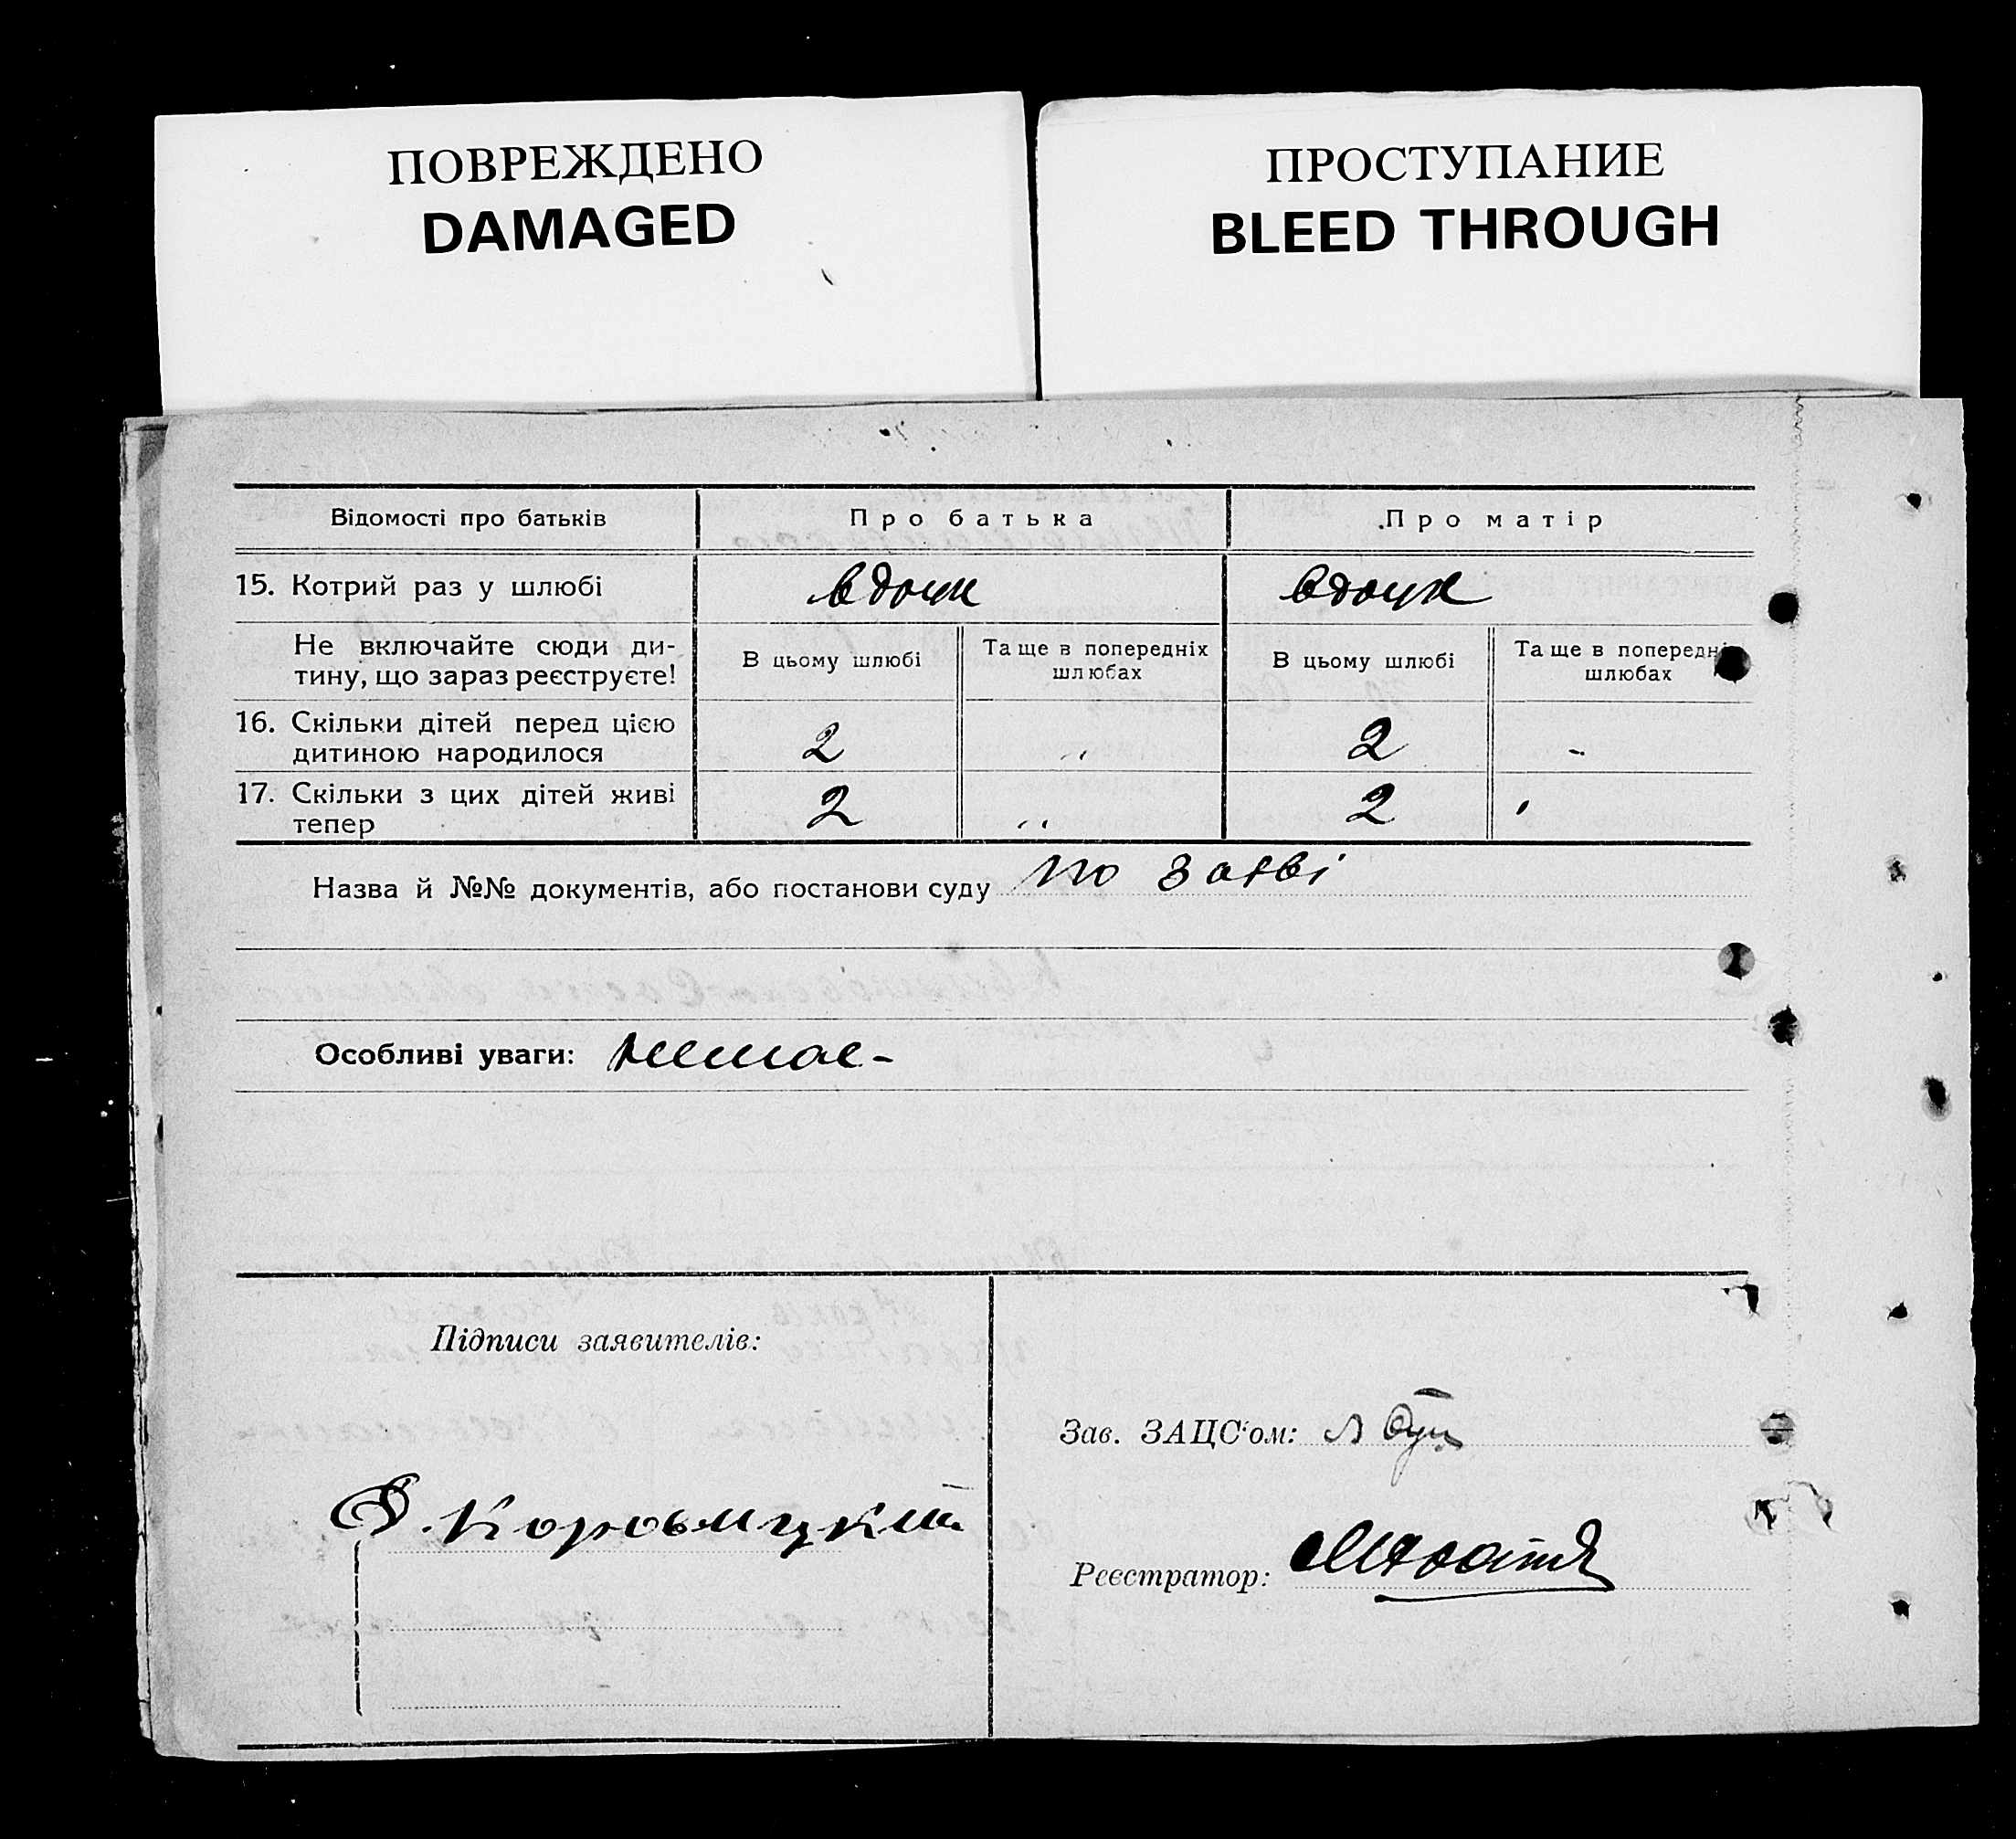 ПОВРЕЖДЕНО
DAMAGED
ПРОСТУПАНИЕ
BLEED THROUGH
Відомості про батьків Про батька Про матір
15. Котрий раз у шлюбі
Не включайте сюди ди-
тину, що зараз реєструєте!
В цьому шлюбі
Та ще в попередніх
шлюбах
В цьому шлюбі
Та ще в попередніх
шлюбах
16. Скільки дітей перед цією
дитиною народилося
2 „ 2 -
17. Скільки з цих дітей живі
тепер
2 „ 2
Назва й №№ документів, або постанови суду по заяві
Особливі уваги: немає -
Підписи заявителів:
Зав. ЗАЦС'ом:
Реєстратор: